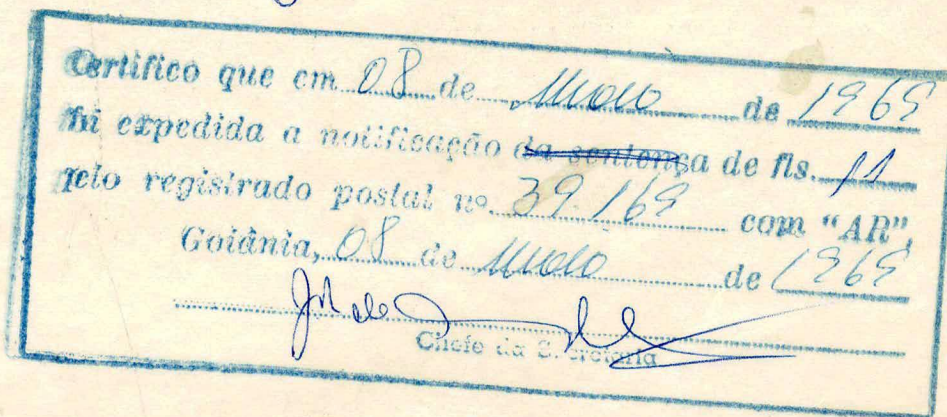 Certifico que em 08 de Maio de 1969
foi expedida a notificação da sentença de fls. 11
pelo registrado postal nº 39.169 com "AR",
Goiânia, 08 de Maio de 1969
Chefe da Secretaria